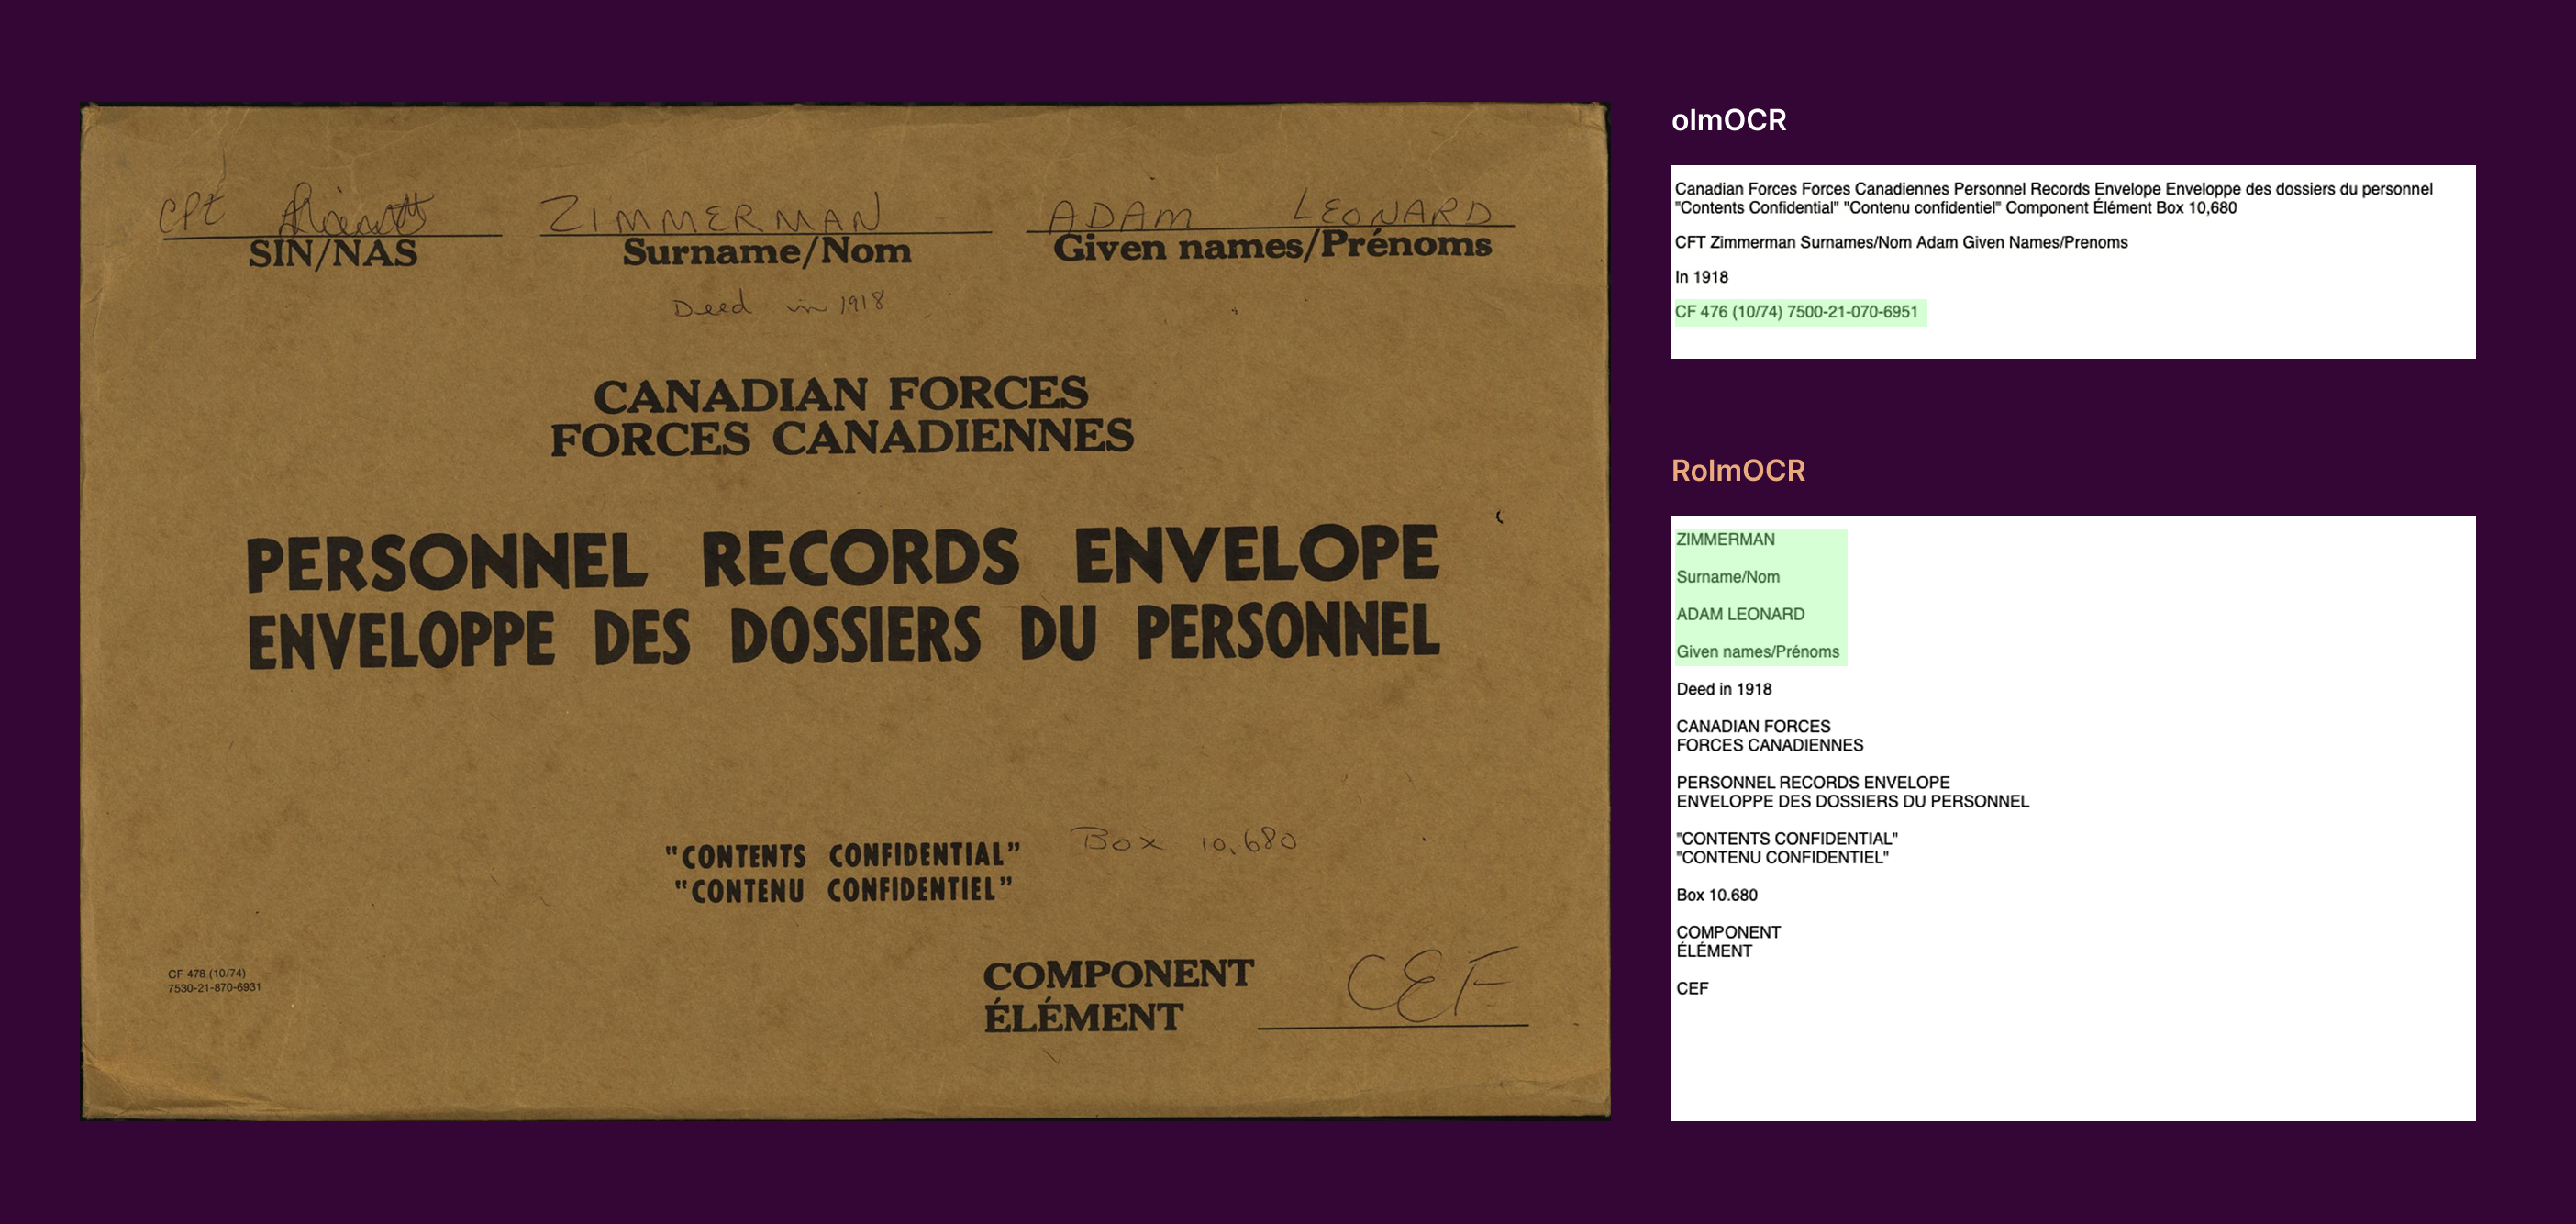 Cpt ZIMMERMAN ADAM LEONARD
SIN/NAS Surname/Nom Given names/Prénoms
Deed in 1918
CANADIAN FORCES
FORCES CANADIENNES
PERSONNEL RECORDS ENVELOPE
ENVELOPPE DES DOSSIERS DU PERSONNEL
"CONTENTS CONFIDENTIAL" Box 10,680
"CONTENU CONFIDENTIEL"
CF 478 (10/74)
7530-21-870-6931
COMPONENT
ÉLÉMENT CEF
olmOCR
Canadian Forces Forces Canadiennes Personnel Records Envelope Enveloppe des dossiers du personnel
"Contents Confidential" "Contenu confidentiel" Component Élément Box 10,680
CFT Zimmerman Surnames/Nom Adam Given Names/Prenoms
In 1918
CF 476 (10/74) 7500-21-070-6951
RolmOCR
ZIMMERMAN
Surname/Nom
ADAM LEONARD
Given names/Prénoms
Deed in 1918
CANADIAN FORCES
FORCES CANADIENNES
PERSONNEL RECORDS ENVELOPE
ENVELOPPE DES DOSSIERS DU PERSONNEL
"CONTENTS CONFIDENTIAL"
"CONTENU CONFIDENTIEL"
Box 10.680
COMPONENT
ÉLÉMENT
CEF